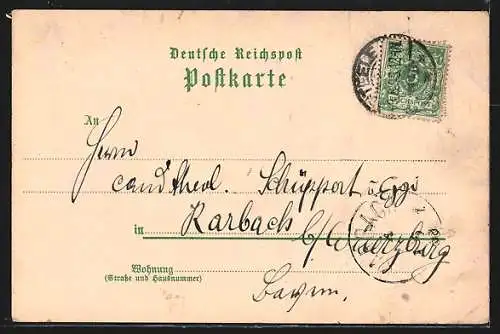 Deutsche Reichspost
Postkarte
An
Herrn
cand theol. Schüpport u.
in Karbach
b/Wuerzburg
Wohnung
(Straße und Hausnummer)
Bayern.